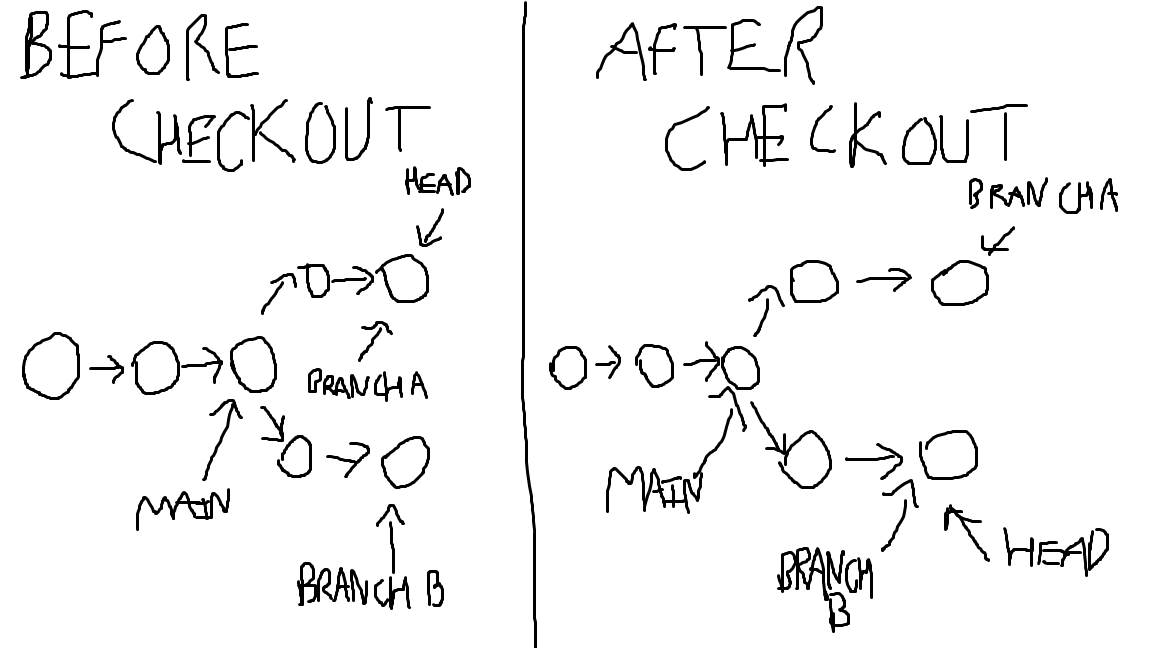 BEFORE
CHECKOUT
HEAD
BRANCH A
MAIN
BRANCH B
AFTER
CHECKOUT
BRANCH A
MAIN
BRANCH
B
HEAD